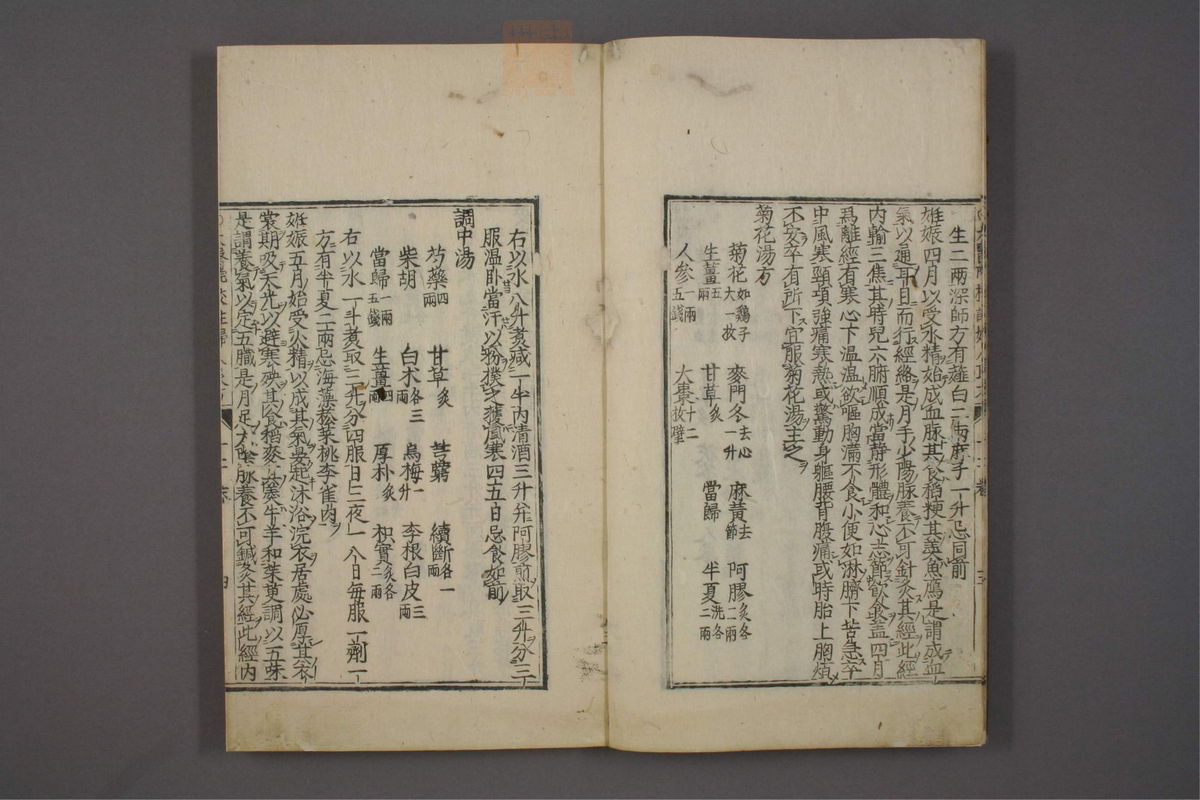 生二兩深師方有薤白二兩麻子一升忌同前
姙娠四月以受水精始成血脉其食稻粳其羮魚鴈是謂成血
氣以通耳目而行經絡是月手少陽脉養不可針灸其經此經
内輸三焦其時兒六腑順成當靜形體和心志節飲食盖四月
爲離經有寒心下温温欲嘔胸滿不食小便如淋臍下苦急卒
中風寒頸項強痛寒熱或驚動身軀腰背腹痛或時胎上胸煩
不安卒有所下宜服菊花湯主之
菊花湯方
菊花如鷄子大一枚 麥門冬去心一升 麻黄去節 阿膠炙各二兩
生薑五兩 甘草炙 當歸 半夏洗各二兩
人參一兩五錢 大棗十二枚擘
右以水八升煮减一半内清酒三升并阿膠煎取三升分三
服温卧當汗以粉撲之護風寒四五日忌食如前
調中湯
芍藥四兩 甘草炙 芎藭 續斷各一兩
柴胡 白术各三兩 烏梅一升 李根白皮三兩
當歸一兩五錢 生薑四兩 厚朴炙 枳實炙各二兩
右以水一斗煮取三升分四服日三夜一今日每服一劑一
方有半夏二兩忌海藻菘菜桃李雀肉
姙娠五月始受火精以成其氣晏起沐浴浣衣居處必厚其衣
裳朝吸天光以避寒殃其食稻麥其羮牛羊和茱萸調以五味
是謂養氣以定五臓是月足太陰脉養不可鍼灸其經此經内